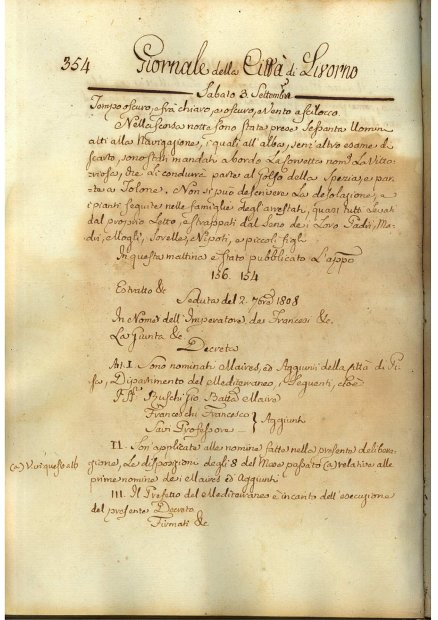 354 Giornale della Città di Livorno
Sabato 3. Settembre
Tempo oscuro, e frà chiaro, e oscuro, e Vento a scilocco.
Nella scorsa notte sono state prese sessanta Uomini
atti alla Navigazione, i quali all'alba, senz'altro esame di
scarto, sono stati mandati a bordo La Corvetta nom. La Vitto,,
riosa, die di condurre parte al Golfo della Spezia, e par,,
te a Tolone, e Non si può descrivere La desolazione, e
i pianti seguiti nelle famiglie degl'arrestati, quasi tutti levati
dal proprio Letto, e strappati dal Seno de i Loro Padri, Ma,,
dri, Mogli, Sorelle, Nipoti, e piccoli figli
In questa mattina è stato pubblicato L'appo
156. 154
Estratto &c
Seduta del 2. 7bre 1808
In Nome dell'Imperatore de i Francesi &c.
La Giunta &c
Decreta
Art. I. Sono nominati Maires, ed Aggiunti della Città di Pi,,
sa, Dipartimento del Mediterraneo, i seguenti, cioè
Ruschi Gio Batta Maire
Franceschi Francesco } Aggiunti
Savi Professore
II. Son' applicate alle nomine fatte nella presente delibera,,
(a) V. in questo alb zione, Le disposizioni degli 8 del Mese passato (a) relative alle
prime nomine de i Maires ed Aggiunti
III. Il Prefetto del Mediterraneo è incanto dell'esecuzione
del presente Decreto
Firmati &c.